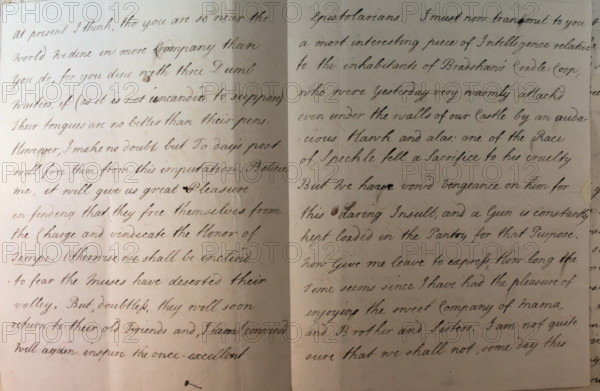 at present I think, tho you are so near the
World We dine in more Company than
You do, for you dine with three Dumb
Waiters, if (as it is not uncandid to suppose)
Their tongues are no better than their pens.
However, I make no doubt but To day's post
will free them from this imputation. Believe
me, it will give us great Pleasure
in finding that they free themselves from
the Charge and vindicate the Honor of
Tempe. Otherwise we shall be inclind
to fear the Muses have deserted their
valley. But, doubtless, they will soon
return to their old Friends and, I am convinced
Will again inspire the once excellent
Epistolarians. I must now transmit to you
a most interesting piece of Intelligence relative
to the inhabitants of Bradshaw's Cradle-Coop,
who were Yesterday very warmly attackd
even under the walls of our Castle by an auda
cious Hawk and alas! one of the Race
of Speckle fell a Sacrifice to his cruelty
But We have vow'd vengeance on him for
this daring Insult, and a Gun is constantly
kept loaded in the Pantry for that Purpose.
Now Give me leave to express, How long the
Time seems since I have had the pleasure of
enjoying the sweet Company of mama
and Brother and Sisters. I am not quite
sure that we shall not, some day this
PHOTO12